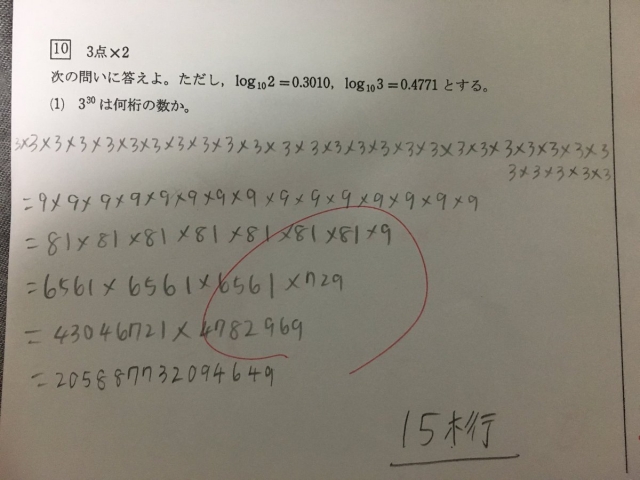 10 3点×2
次の問いに答えよ。ただし，log₁₀2＝0.3010，log₁₀3＝0.4771とする。
(1) 3³⁰は何桁の数か。
3×3×3×3×3×3×3×3×3×3×3×3×3×3×3×3×3×3×3×3×3×3×3×3×3
3×3×3×3×3
=9×9×9×9×9×9×9×9×9×9×9×9×9×9×9
=81×81×81×81×81×81×81×9
=6561×6561×6561×729
=43046721×4782969
=205887732094649
15桁